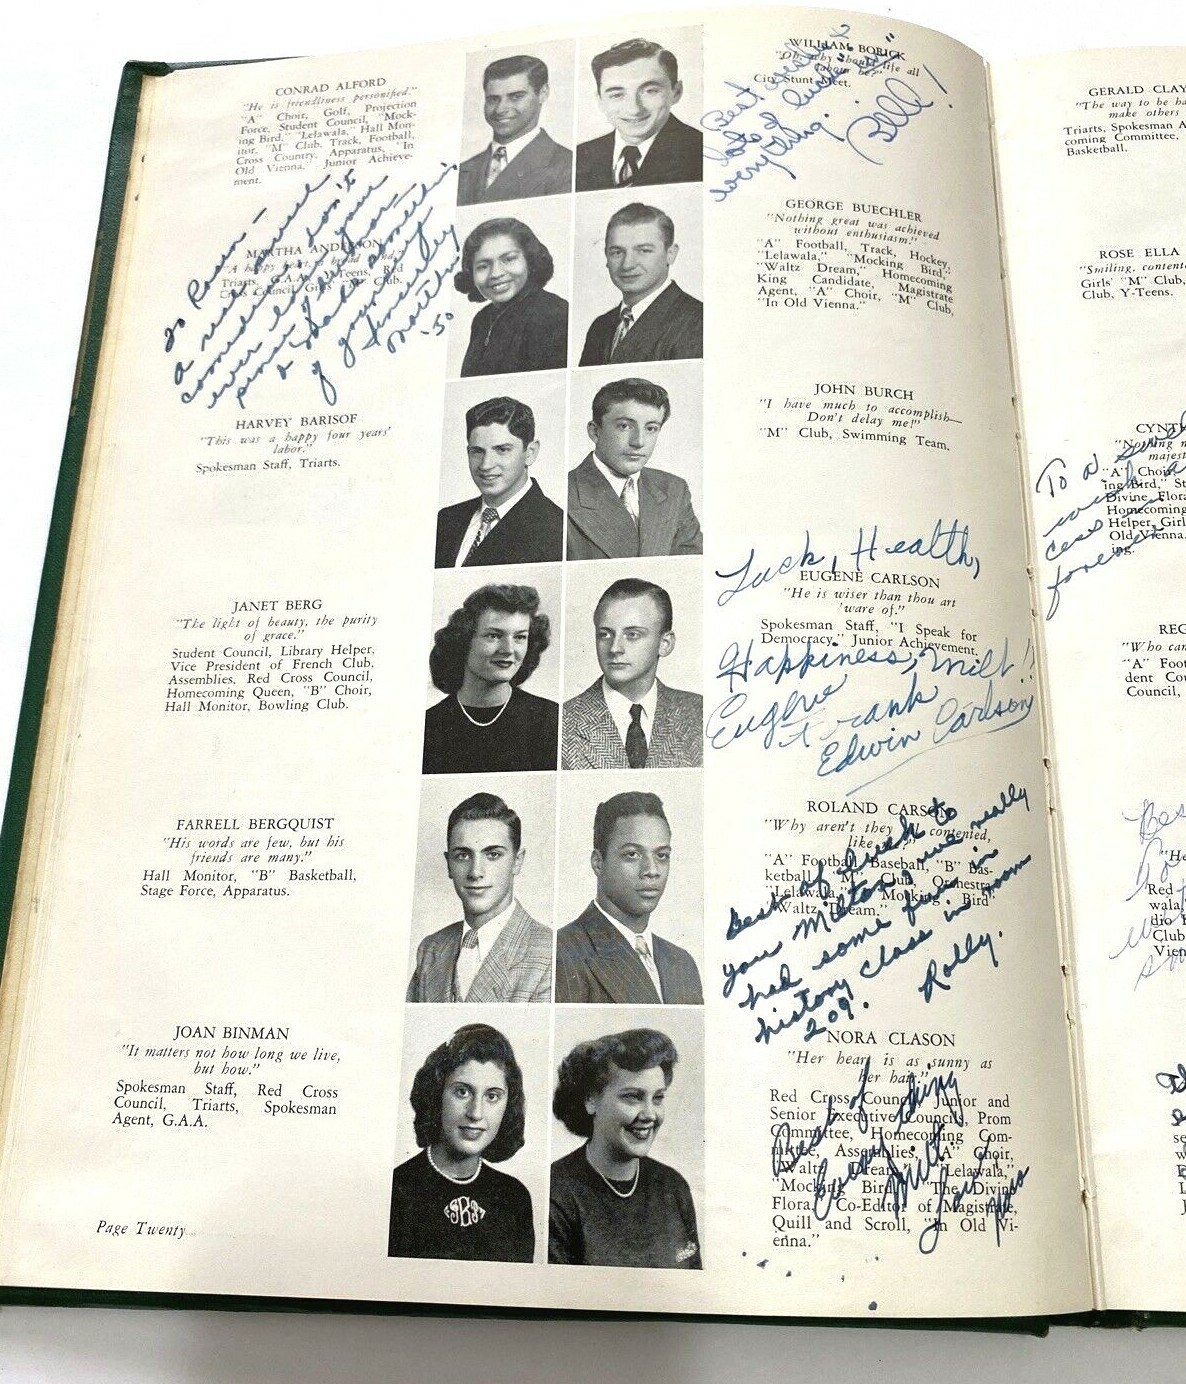 CONRAD ALFORD
"He is friendliness personified."
"A" Choir, Golf, Projection
Force, Student Council, "Mock-
ing Bird," "Lelawala," Hall Mon-
itor, "M" Club, Track, Football,
Cross Country, Apparatus, "In
Old Vienna," Junior Achieve-
ment.
MARTHA ANDERSON
"A happy heart
Triarts, G.A.A., Y-Teens, Red
Cross Council, Girls' "M" Club.
a
ever
a
of
sincerely
Martha
'50
HARVEY BARISOF
"This was a happy four years'
labor."
Spokesman Staff, Triarts.
JANET BERG
"The light of beauty, the purity
of grace."
Student Council, Library Helper,
Vice President of French Club,
Assemblies, Red Cross Council,
Homecoming Queen, "B" Choir,
Hall Monitor, Bowling Club.
FARRELL BERGQUIST
"His words are few, but his
friends are many."
Hall Monitor, "B" Basketball,
Stage Force, Apparatus.
JOAN BINMAN
"It matters not how long we live,
but how."
Spokesman Staff, Red Cross
Council, Triarts, Spokesman
Agent, G.A.A.
Page Twenty
WILLIAM BORICK
"Oh, why should life all
labour be?"
City Stunt Meet.
Best
lots of luck in
everything.
Bill!
GEORGE BUECHLER
"Nothing great was achieved
without enthusiasm."
"A" Football, Track, Hockey,
"Lelawala," "Mocking Bird,"
"Waltz Dream," Homecoming
King Candidate, Magistrate
Agent, "A" Choir, "M" Club,
"In Old Vienna."
JOHN BURCH
"I have much to accomplish—
Don't delay me!"
"M" Club, Swimming Team.
Luck, Health,
EUGENE CARLSON
"He is wiser than thou art
'ware of."
Spokesman Staff, "I Speak for
Democracy," Junior Achievement.
Happiness, Milt!!
Eugene
Frank
Edwin Carlson
ROLAND CARSON
"Why aren't they all contented,
like me?"
"A" Football, Baseball, "B" Bas-
ketball, "M" Club, Orchestra,
"Lelawala," "Mocking Bird"
"Waltz Dream."
Best of luck to
you Milton we really
had some fun in
history class in room
209. Rolly.
NORA CLASON
"Her heart is as sunny as
her hair."
Red Cross Council, Junior and
Senior Executive Councils, Prom
Committee, Homecoming Com-
mittee, Assemblies, "A" Choir,
"Waltz Dream," "Lelawala,"
"Mocking Bird," "The Divine
Flora," Co-Editor of Magistrate,
Quill and Scroll, "In Old Vi-
enna."
Best of
Everything
Milt.
Love,
GERALD CLAY
"The way to be ha
make others
Triarts, Spokesman A
coming Committee,
Basketball.
ROSE ELLA
"Smiling, contente
Girls' "M" Club,
Club, Y-Teens.
CYNT
"Nothing m
majest
"A" Choir,
ing Bird," St
Divine Flora
Homecoming
Helper, Girl
Old Vienna,
ing.
To a
forever
REG
"Who can
"A" Foot
dent Cou
Council,
Bes
"He
Red
wala,
dio
Club
Vien